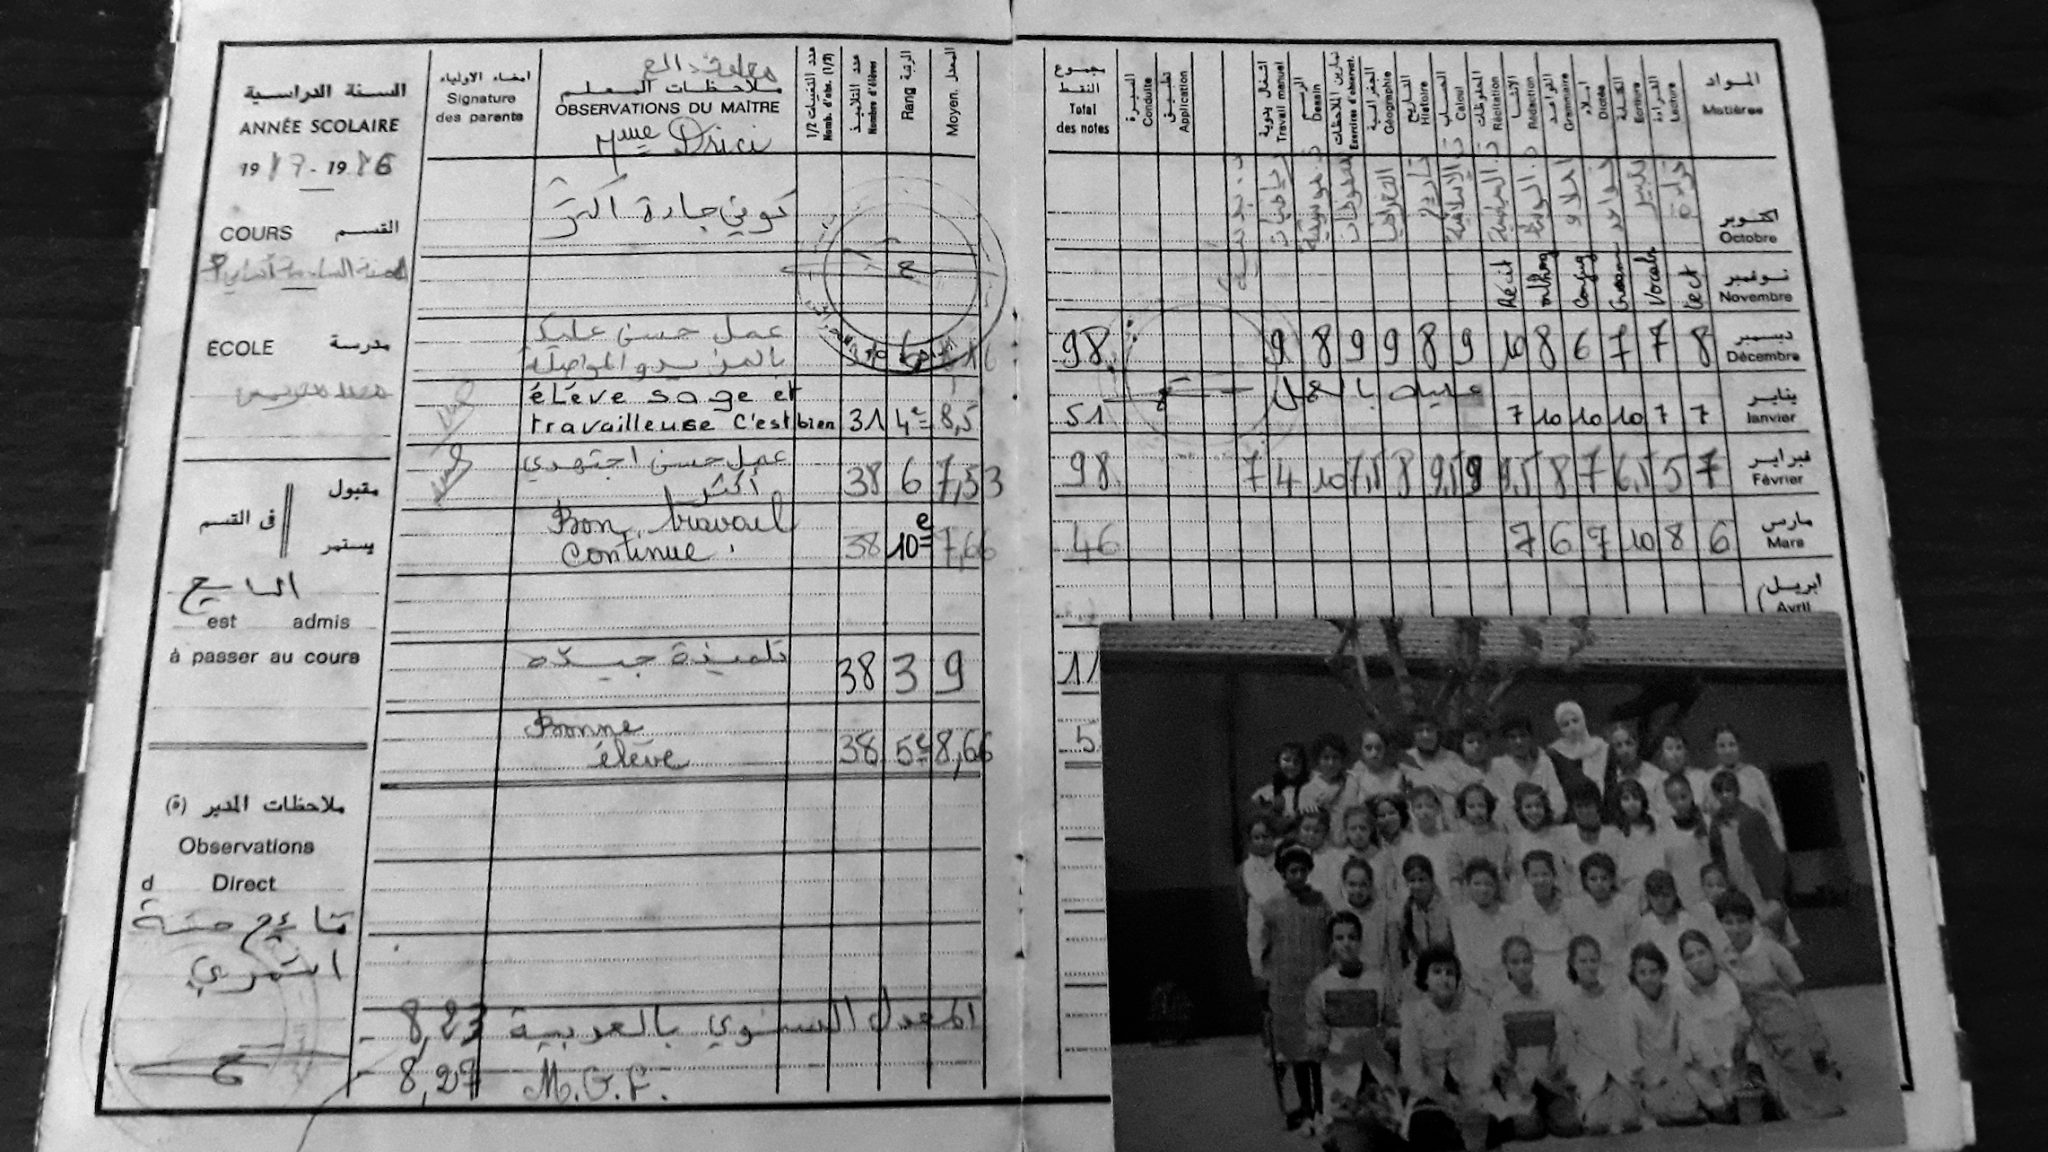 السنة الدراسية
ANNÉE SCOLAIRE
COURS القسم
ECOLE مدرسة
مقبول
في القسم
يستمر
est admis
à passer au cours
ملاحظات المدير (ة)
Observations
d Direct
استمري
امضاء الاولياء
Signature
des parents
ملاحظات المعلم
OBSERVATIONS DU MAÎTRE
Mme Drici
عدد التلاميذ
Nombre d'élèves
الرتبة
Rang
المعدل
Moyen.
كوني جادة أكثر
عمل حسن عليك
بالمزيد و المواصلة
élève sage et
travailleuse C'est bien 31 4e 8,5
عمل حسن اجتهدي
أكثر
38 6 7,53
Bon travail
continue 38 10e 7,66
تلميذة جيدة 38 3 9
Bonne
élève 38 5e 8,66
المعدل السنوي بالعربية 8,23
M.G.F. 8,27
مجموع
النقط
Total
des notes
السيرة
Conduite
تطبيق
Application
اشغال يدوية
Travail manuel
الرسم
Dessin
تمارين الملاحظات
Exercices d'observat.
الجغرافية
Géographie
التاريخ
Histoire
الحساب
Calcul
المحفوظات
Récitation
الانشاء
Rédaction
القواعد
Grammaire
املاء
Dictée
الكتابة
Ecriture
القراءة
Lecture
المواد
Matières
اكتوبر
Octobre
Récit
Conjug
Gram
Vocab
Lect
نوفمبر
Novembre
98 9 8 9 9 8 9 10 8 6 7 7 8
ديسمبر
Décembre
51 7 10 10 10 7 7
يناير
Janvier
98 7 4 10 7,5 8 9,5 9 9,5 8 7 6,5 5 7
فبراير
Février
46 7 6 7 10 8 6
مارس
Mars
ابريل
Avril